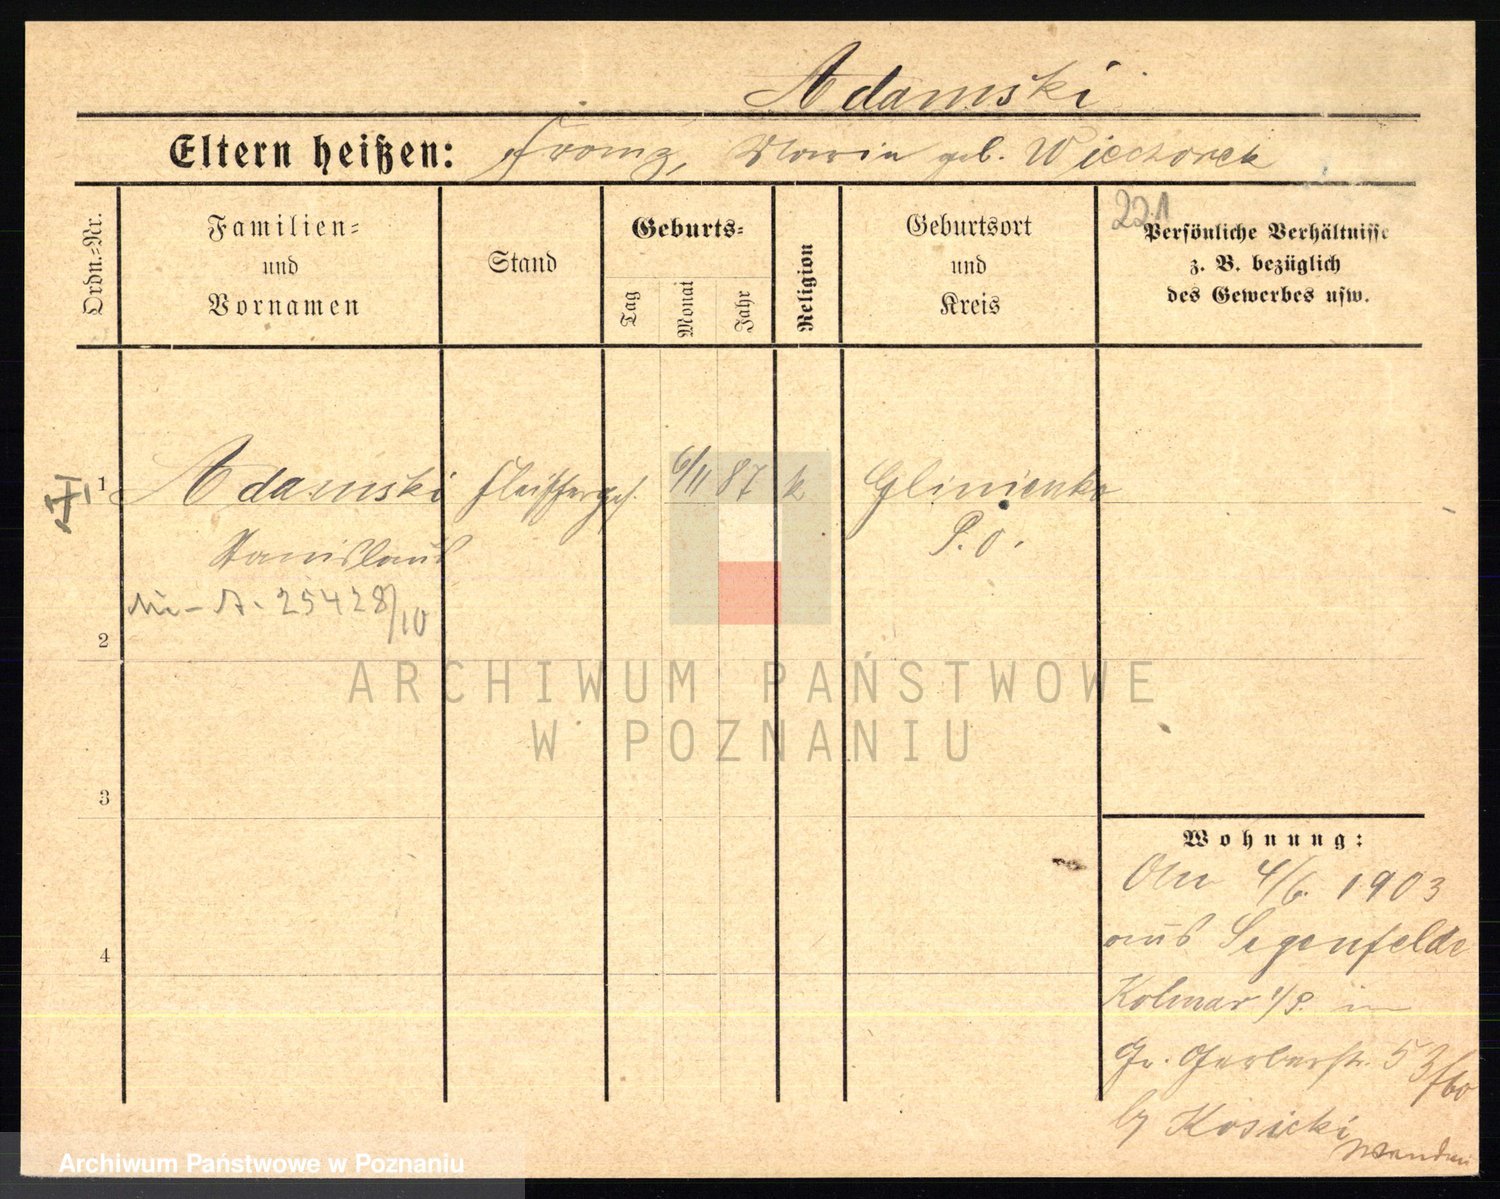 Adamski
Eltern heißen: Franz, Maria geb. Wieczorek
Ordn.-Nr.
Familien- und Vornamen
Stand
Geburts-
Tag
Monat
Jahr
Religion
Geburtsort und Kreis
221
Persönliche Verhältnisse
z. B. bezüglich
des Gewerbes usw.
1 Adamski Fleischerges. 6/11 87 k Glinienko
Stanislaus P. O.
25428/10
2
3
4
Wohnung:
4/6. 1903
aus Segenfelde
Kolmar i/P. in
Gr. Gerberstr. 53
by Kosicki
ARCHIWUM PAŃSTWOWE
W POZNANIU
Archiwum Państwowe w Poznaniu